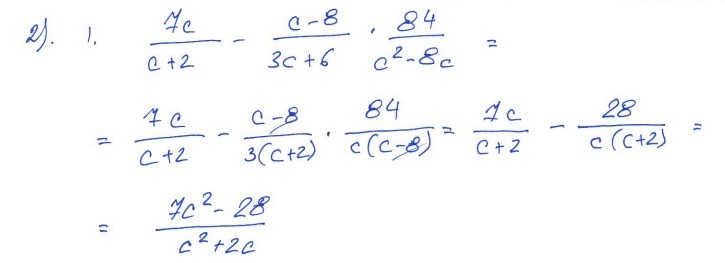 2). 1. 7c/(c+2) - (c-8)/(3c+6) · 84/(c²-8c) =
= 7c/(c+2) - (c-8)/(3(c+2)) · 84/(c(c-8)) = 7c/(c+2) - 28/(c(c+2)) =
= (7c²-28)/(c²+2c)